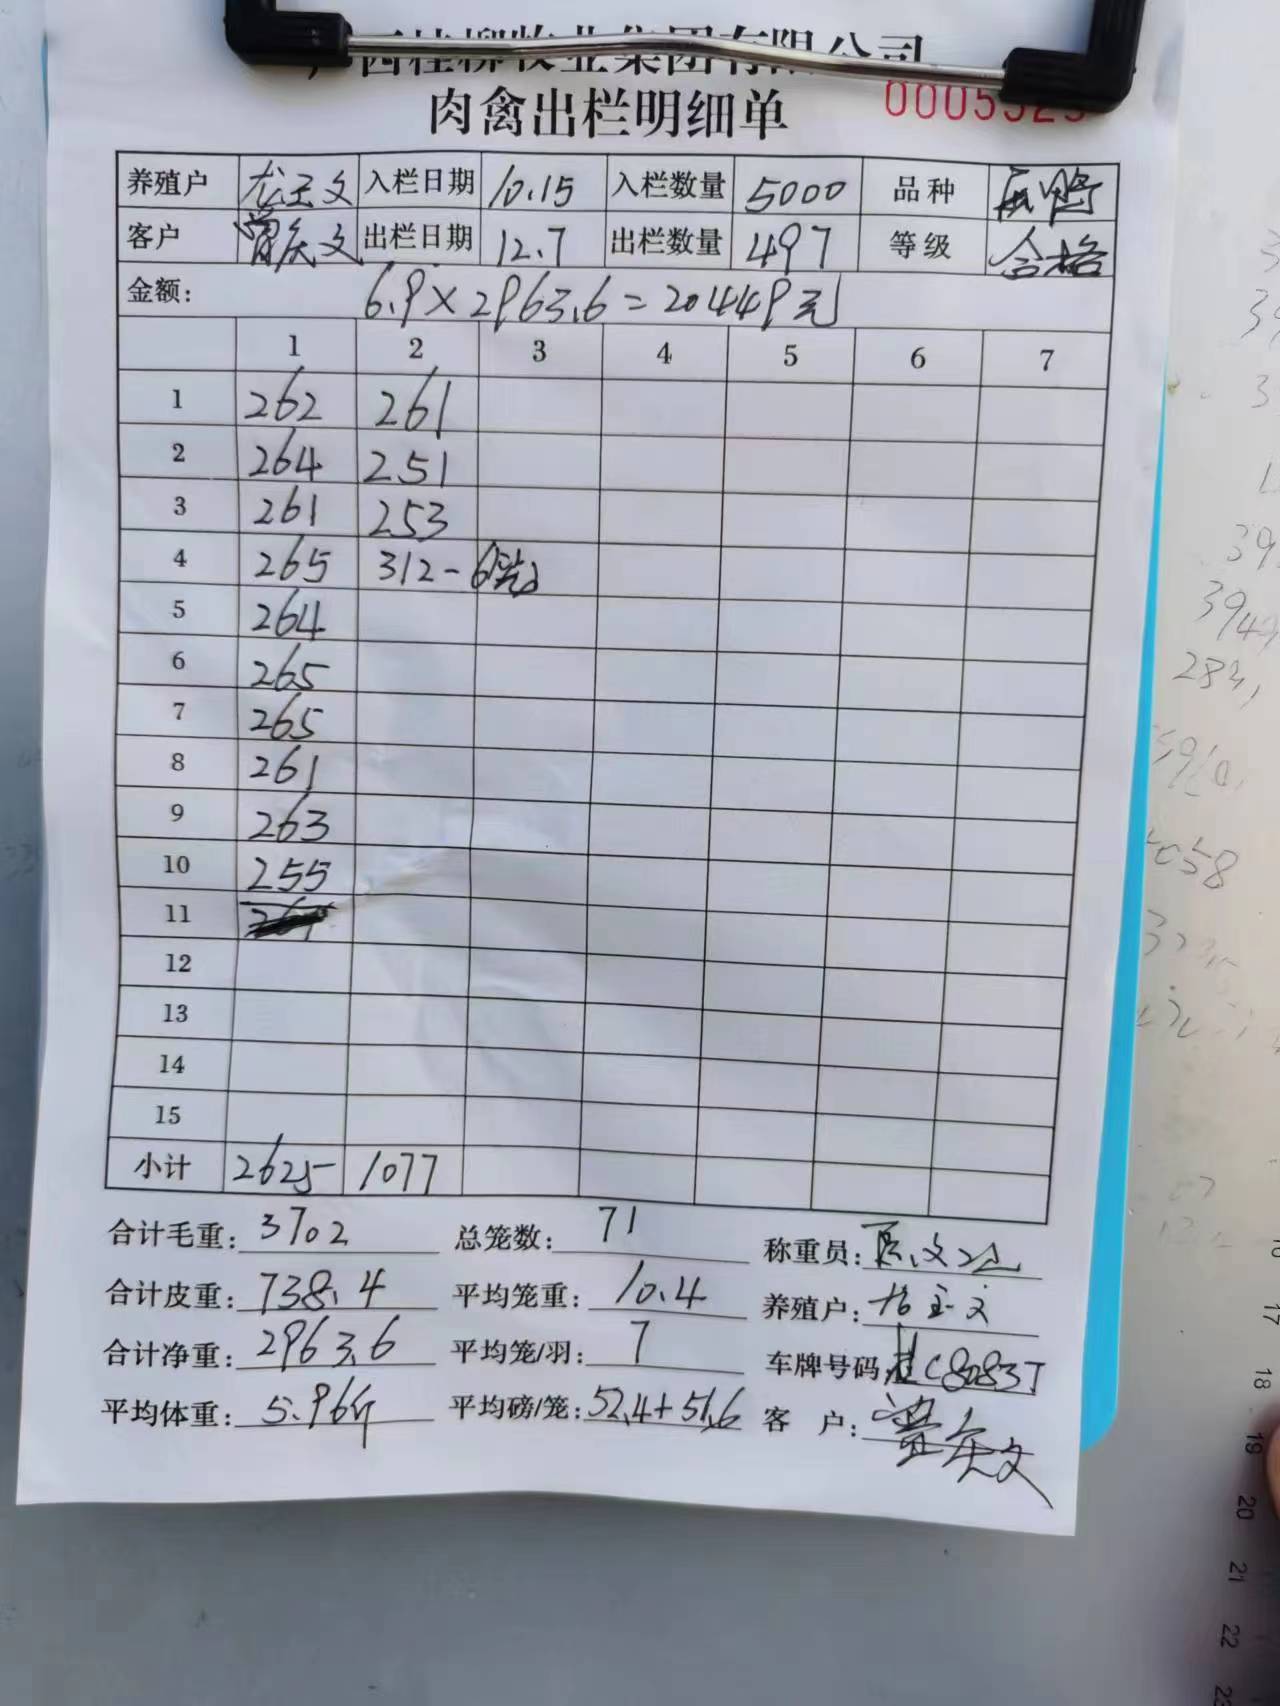 西桂柳牧业集团有限公司
肉禽出栏明细单
养殖户 龙玉文 入栏日期 10.15 入栏数量 5000 品种
客户 曾庆文 出栏日期 12.7 出栏数量 497 等级 合格
金额: 6.9×2963.6=20449元
1 2 3 4 5 6 7
1 262 261
2 264 251
3 261 253
4 265 312-6
5 264
6 265
7 265
8 261
9 263
10 255
11
12
13
14
15
小计 2625 1077
合计毛重: 3702 总笼数: 71 称重员:
合计皮重: 738.4 平均笼重: 10.4 养殖户:
合计净重: 2963.6 平均笼/羽: 7 车牌号码: 桂C8083J
平均体重: 5.96斤 平均磅/笼: 52.4+51.6 客 户: 曾庆文
394
283,
058
17
18
19
20
21
22